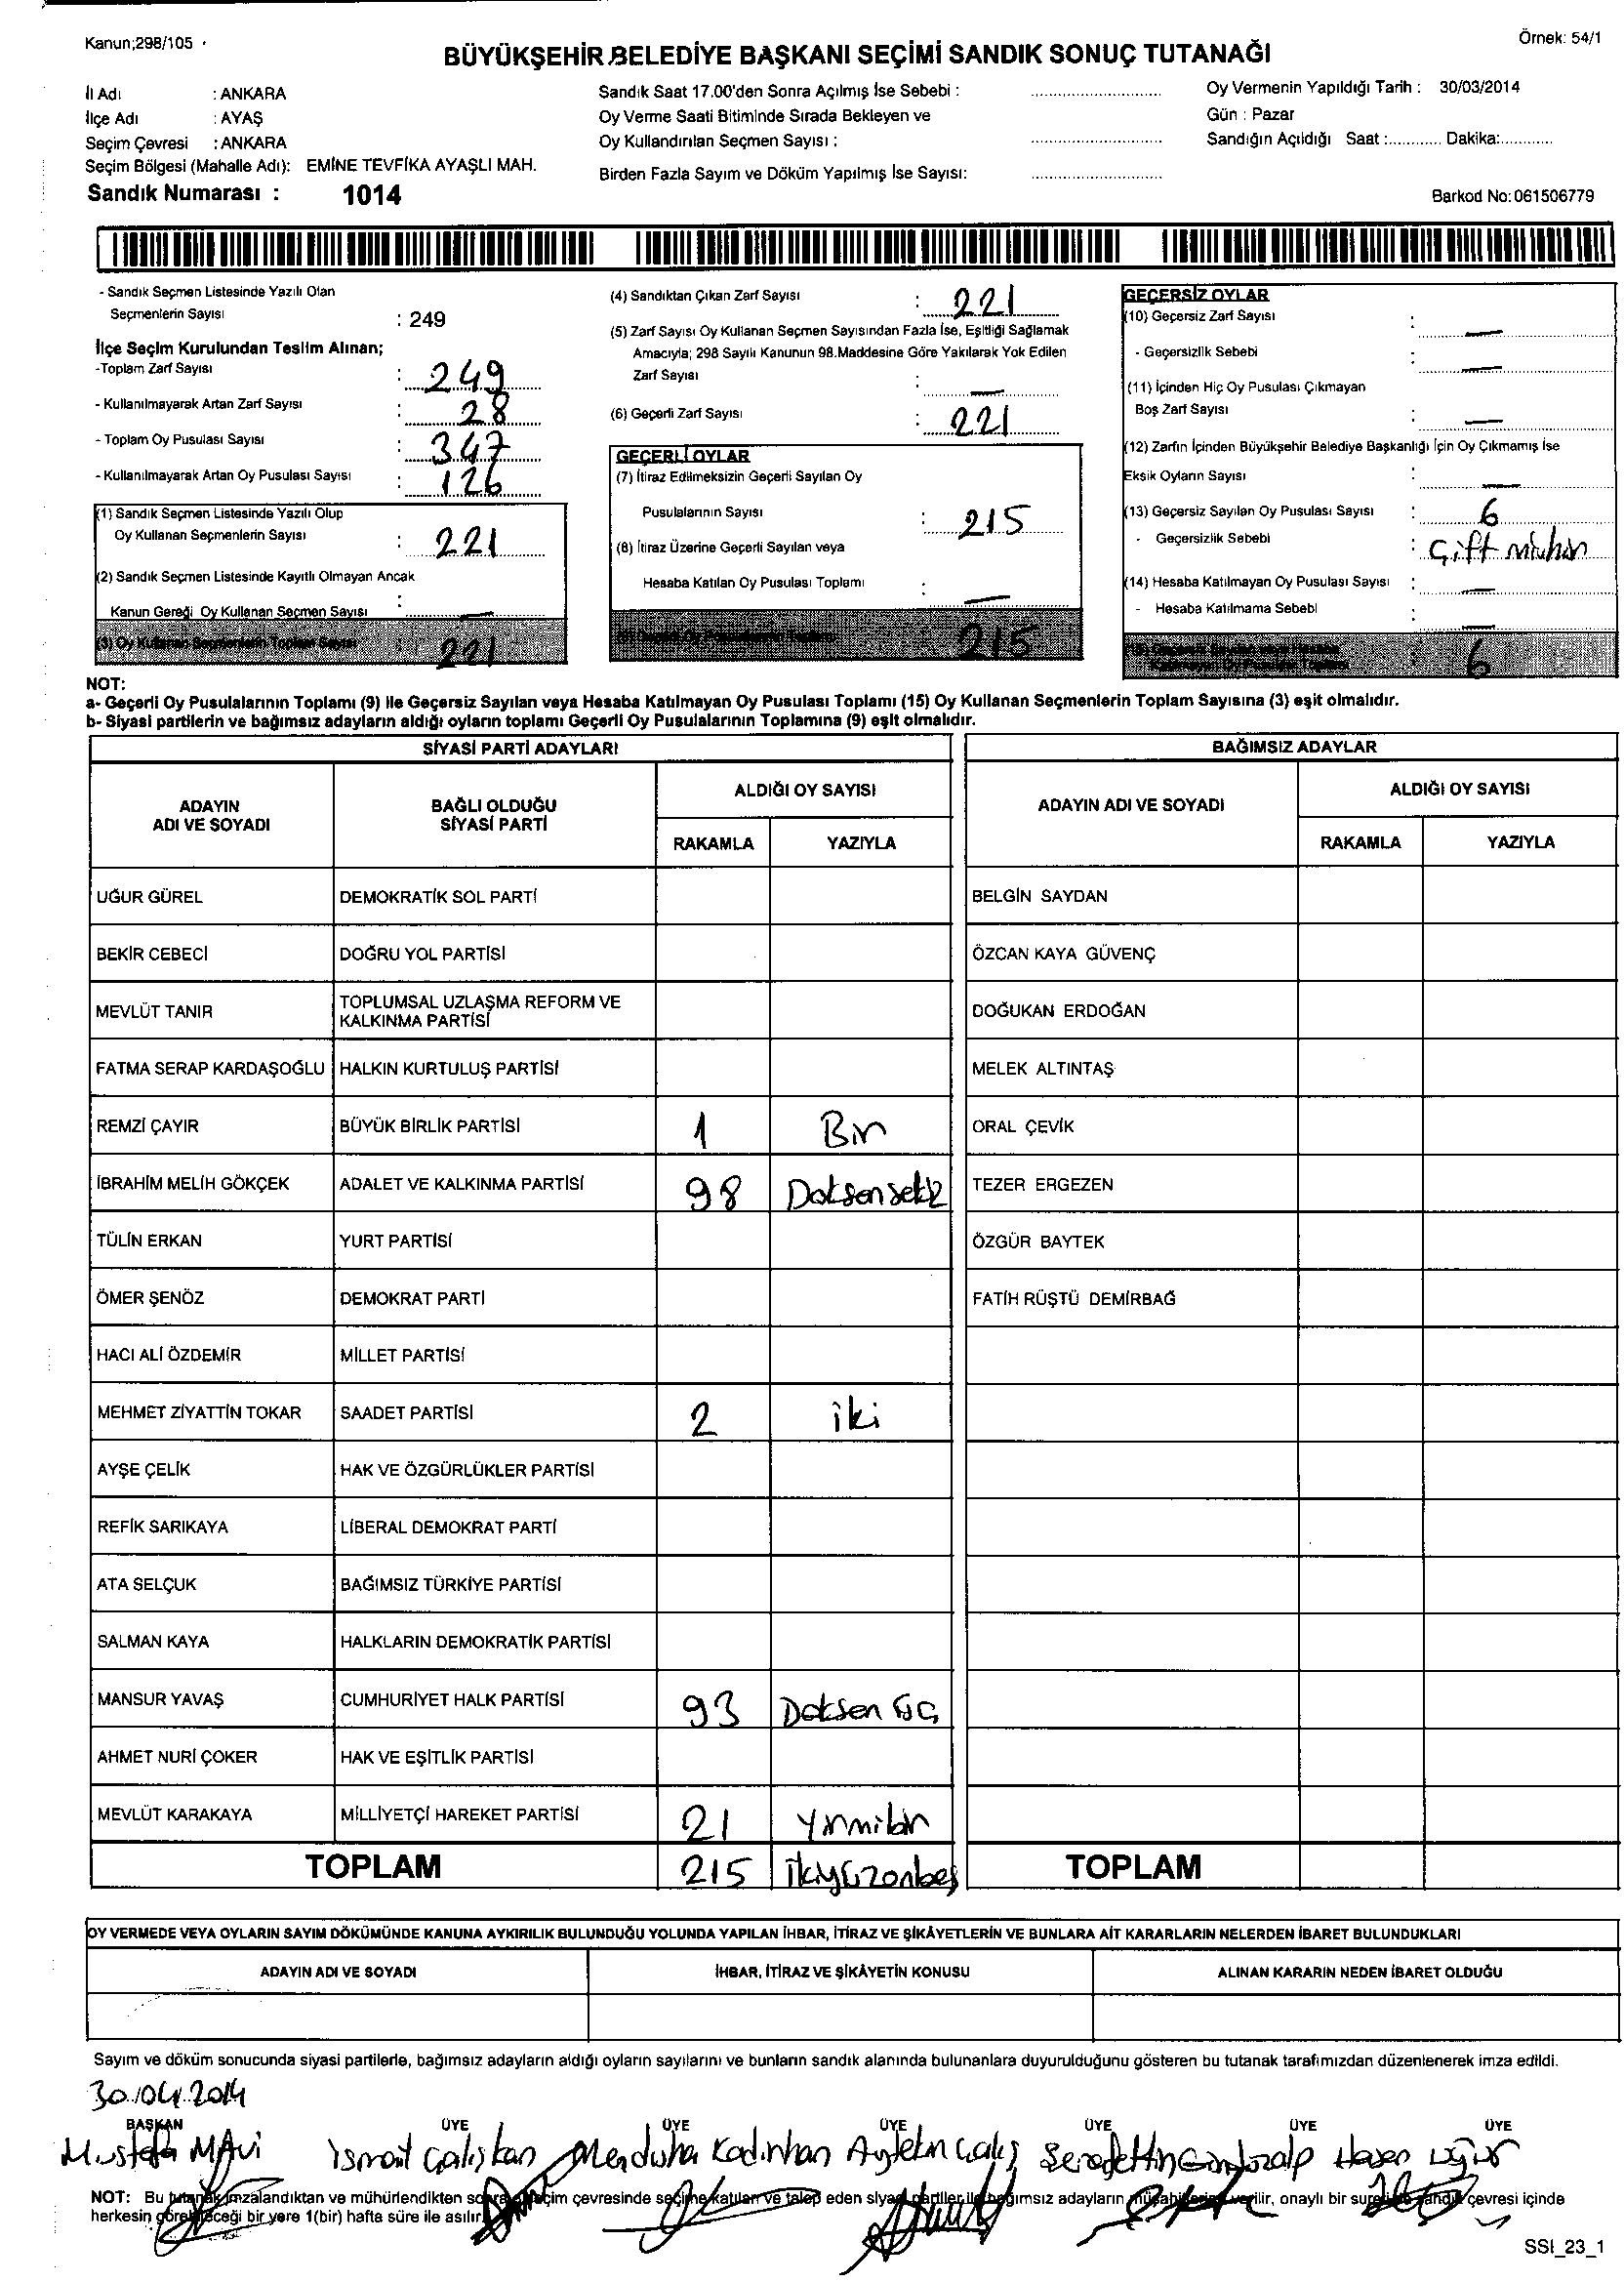 Kanun;298/105
Örnek: 54/1
BÜYÜKŞEHİR BELEDİYE BAŞKANI SEÇİMİ SANDIK SONUÇ TUTANAĞI
İl Adı : ANKARA
İlçe Adı : AYAŞ
Seçim Çevresi : ANKARA
Seçim Bölgesi (Mahalle Adı): EMİNE TEVFİKA AYAŞLI MAH.
Sandık Numarası : 1014
Sandık Saat 17.00'den Sonra Açılmış İse Sebebi :
Oy Verme Saati Bitiminde Sırada Bekleyen ve
Oy Kullandırılan Seçmen Sayısı :
Birden Fazla Sayım ve Döküm Yapılmış İse Sayısı:
Oy Vermenin Yapıldığı Tarih : 30/03/2014
Gün : Pazar
Sandığın Açıldığı Saat :............ Dakika:............
Barkod No:061506779
- Sandık Seçmen Listesinde Yazılı Olan
Seçmenlerin Sayısı : 249
İlçe Seçim Kurulundan Teslim Alınan;
-Toplam Zarf Sayısı : 249
- Kullanılmayarak Artan Zarf Sayısı : 28
- Toplam Oy Pusulası Sayısı : 347
- Kullanılmayarak Artan Oy Pusulası Sayısı : 126
(1) Sandık Seçmen Listesinde Yazılı Olup
Oy Kullanan Seçmenlerin Sayısı : 221
(2) Sandık Seçmen Listesinde Kayıtlı Olmayan Ancak
Kanun Gereği Oy Kullanan Seçmen Sayısı : —
(3) Oy Kullanan Seçmenlerin Toplam Sayısı : 221
(4) Sandıktan Çıkan Zarf Sayısı : 221
(5) Zarf Sayısı Oy Kullanan Seçmen Sayısından Fazla İse, Eşitliği Sağlamak
Amacıyla; 298 Sayılı Kanunun 98.Maddesine Göre Yakılarak Yok Edilen
Zarf Sayısı : —
(6) Geçerli Zarf Sayısı : 221
GEÇERLİ OYLAR
(7) İtiraz Edilmeksizin Geçerli Sayılan Oy
Pusulalarının Sayısı : 215
(8) İtiraz Üzerine Geçerli Sayılan veya
Hesaba Katılan Oy Pusulası Toplamı : —
(9) Geçerli Oy Pusulalarının Toplamı : 215
GEÇERSİZ OYLAR
(10) Geçersiz Zarf Sayısı : —
- Geçersizlik Sebebi : —
(11) İçinden Hiç Oy Pusulası Çıkmayan
Boş Zarf Sayısı : —
(12) Zarfın İçinden Büyükşehir Belediye Başkanlığı İçin Oy Çıkmamış İse
Eksik Oyların Sayısı : —
(13) Geçersiz Sayılan Oy Pusulası Sayısı : 6
- Geçersizlik Sebebi : Çift mühür
(14) Hesaba Katılmayan Oy Pusulası Sayısı : —
- Hesaba Katılmama Sebebi : —
(15) Geçersiz Sayılan veya Hesaba
Katılmayan Oy Pusulası Toplamı : 6
NOT:
a- Geçerli Oy Pusulalarının Toplamı (9) ile Geçersiz Sayılan veya Hesaba Katılmayan Oy Pusulası Toplamı (15) Oy Kullanan Seçmenlerin Toplam Sayısına (3) eşit olmalıdır.
b- Siyasi partilerin ve bağımsız adayların aldığı oyların toplamı Geçerli Oy Pusulalarının Toplamına (9) eşit olmalıdır.
SİYASİ PARTİ ADAYLARI
BAĞIMSIZ ADAYLAR
ADAYIN ADI VE SOYADI
BAĞLI OLDUĞU SİYASİ PARTİ
ALDIĞI OY SAYISI
RAKAMLA YAZIYLA
ADAYIN ADI VE SOYADI
ALDIĞI OY SAYISI
RAKAMLA YAZIYLA
UĞUR GÜREL DEMOKRATİK SOL PARTİ BELGİN SAYDAN
BEKİR CEBECİ DOĞRU YOL PARTİSİ ÖZCAN KAYA GÜVENÇ
MEVLÜT TANIR TOPLUMSAL UZLAŞMA REFORM VE KALKINMA PARTİSİ DOĞUKAN ERDOĞAN
FATMA SERAP KARDAŞOĞLU HALKIN KURTULUŞ PARTİSİ MELEK ALTINTAŞ
REMZİ ÇAYIR BÜYÜK BİRLİK PARTİSİ 1 Bir ORAL ÇEVİK
İBRAHİM MELİH GÖKÇEK ADALET VE KALKINMA PARTİSİ 98 Doksansekiz TEZER ERGEZEN
TÜLİN ERKAN YURT PARTİSİ ÖZGÜR BAYTEK
ÖMER ŞENÖZ DEMOKRAT PARTİ FATİH RÜŞTÜ DEMİRBAĞ
HACI ALİ ÖZDEMİR MİLLET PARTİSİ
MEHMET ZİYATTİN TOKAR SAADET PARTİSİ 2 iki
AYŞE ÇELİK HAK VE ÖZGÜRLÜKLER PARTİSİ
REFİK SARIKAYA LİBERAL DEMOKRAT PARTİ
ATA SELÇUK BAĞIMSIZ TÜRKİYE PARTİSİ
SALMAN KAYA HALKLARIN DEMOKRATİK PARTİSİ
MANSUR YAVAŞ CUMHURİYET HALK PARTİSİ 93 Doksan üç
AHMET NURİ ÇOKER HAK VE EŞİTLİK PARTİSİ
MEVLÜT KARAKAYA MİLLİYETÇİ HAREKET PARTİSİ 21 Yirmibir
TOPLAM 215 İkiyüzonbeş TOPLAM
OY VERMEDE VEYA OYLARIN SAYIM DÖKÜMÜNDE KANUNA AYKIRILIK BULUNDUĞU YOLUNDA YAPILAN İHBAR, İTİRAZ VE ŞİKÂYETLERİN VE BUNLARA AİT KARARLARIN NELERDEN İBARET BULUNDUKLARI
ADAYIN ADI VE SOYADI İHBAR, İTİRAZ VE ŞİKÂYETİN KONUSU ALINAN KARARIN NEDEN İBARET OLDUĞU
Sayım ve döküm sonucunda siyasi partilerle, bağımsız adayların aldığı oyların sayılarını ve bunların sandık alanında bulunanlara duyurulduğunu gösteren bu tutanak tarafımızdan düzenlenerek imza edildi.
30.04.2014
BAŞKAN ÜYE ÜYE ÜYE ÜYE ÜYE ÜYE
Mustafa MAvi İsmail Çalışkan Menduha Kadınhan Aytekin Çalış Hasan Uğur
NOT: Bu tutanak imzalandıktan ve mühürlendikten sonra seçim çevresinde seçime katılan ve talep eden siyasi partiler ile bağımsız adayların müşahitlerine verilir, onaylı bir sureti de sandık çevresi içinde
herkesin görebileceği bir yere 1(bir) hafta süre ile asılır.
SSI_23_1